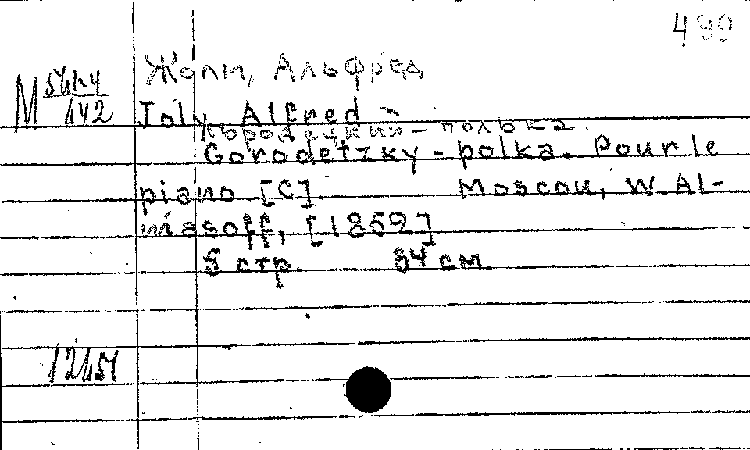 Жоли, Альфред
Joly, Alfred -
Городецкий-полька.
Gorodetzky-polka. Pour le
piano [C] Moscou, W. Al-
masoff, [1859]
5 стр. 34 см.